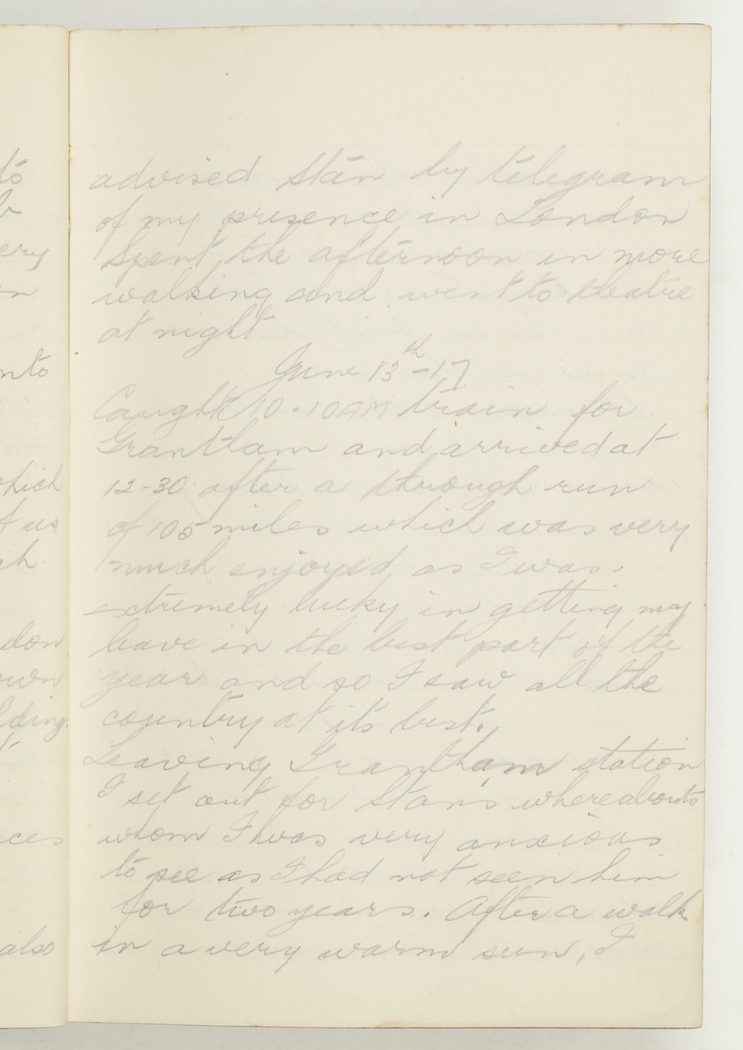 advised Stan by telegram
of my presence in London
Spent the afternoon in more
walking and went to theatre
at night
June 13th-17
Caught 10.10AM train for
Grantham and arrived at
12-30 after a through run
of 105 miles which was very
much enjoyed as I was
extremely lucky in getting my
leave in the best part of the
year and so I saw all the
country at it's best.
Leaving Grantham station
I set out for Stan's whereabouts
whom I was very anxious
to see as I had not seen him
for two years. After a walk
in a very warm sun, I
to
ery
nto
which
t us
don
own
lding
ces
also